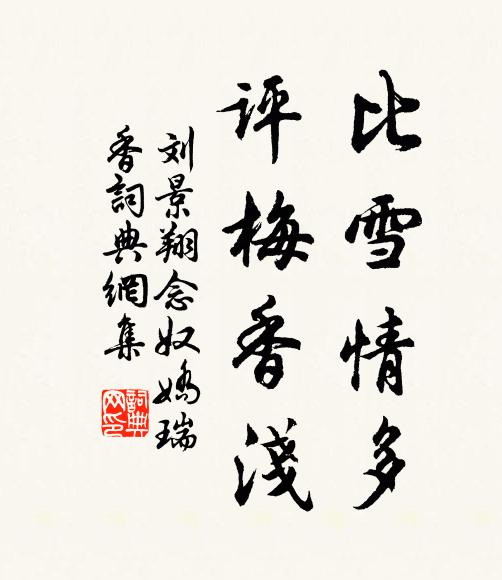 比雪情多
评梅香淺
刘景翔念奴嬌瑞
香詞典網集
詞典
网印